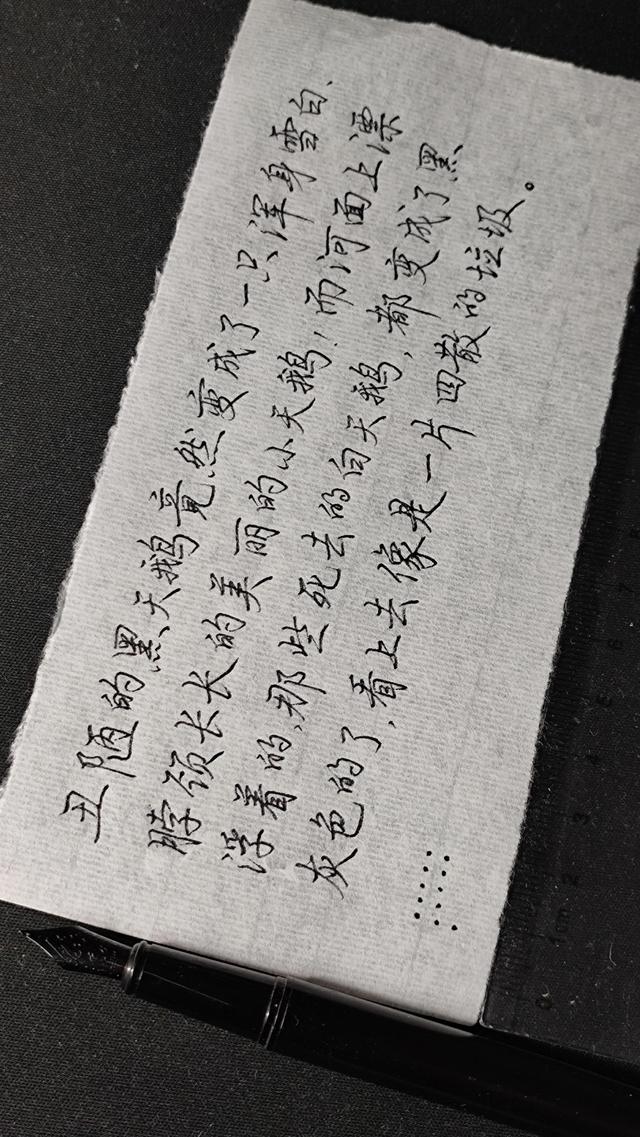 丑陋的黑天鹅竟然变成了一只浑身雪白、
脖颈长长的美丽的小天鹅！而河面上漂
浮着的，那些死去的白天鹅，都变成了黑
灰色的了，看上去像是一片四散的垃圾。
............
0 1cm 2 3 4 5 6 7 8